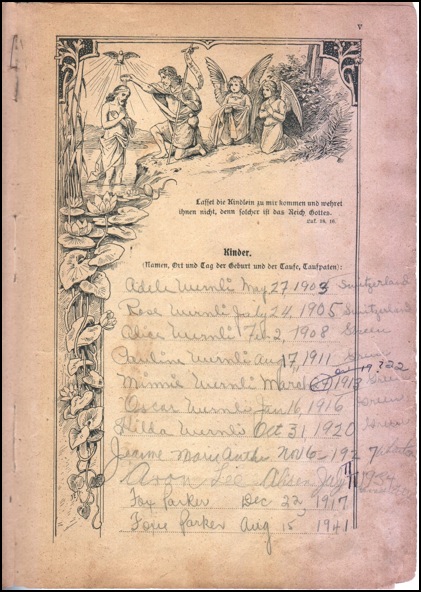 V
Lasset die Kindlein zu mir kommen und wehret
ihnen nicht, denn solcher ist das Reich Gottes.
Luk. 18, 16.
Kinder.
(Namen, Ort und Tag der Geburt und der Taufe, Taufpaten):
Adele Wernli May 27, 1903 Switzerland
Rose Wernli July 24, 1905 Switzerland
Alice Wernli Feb 2, 1908 Green
Pauline Wernli Aug 17, 1911 Green
Minnie Wernli March 1913 Green
Oscar Wernli Jan 16, 1916 Green
Hilda Wernli Oct 31, 1920
Jeanne Marie Nov 6 - 192
Aron Lee
Fay Parker Dec 22, 1917
Foxie Parker Aug 15 1941